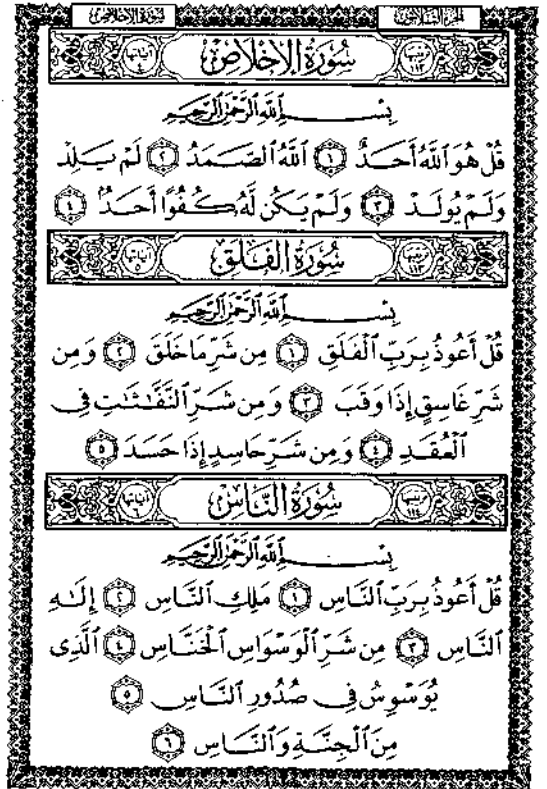 سُورَةُ الإِخْلَاصِ الجزء الثلاثون
ترتيبها ١١٢ سُورَةُ الإِخْلَاصِ آياتها ٤
بِسْمِ ٱللَّهِ ٱلرَّحْمَٰنِ ٱلرَّحِيمِ
قُلْ هُوَ ٱللَّهُ أَحَدٌ ١ ٱللَّهُ ٱلصَّمَدُ ٢ لَمْ يَلِدْ
وَلَمْ يُولَدْ ٣ وَلَمْ يَكُن لَّهُۥ كُفُوًا أَحَدٌۢ ٤
ترتيبها ١١٣ سُورَةُ الفَلَقِ آياتها ٥
بِسْمِ ٱللَّهِ ٱلرَّحْمَٰنِ ٱلرَّحِيمِ
قُلْ أَعُوذُ بِرَبِّ ٱلْفَلَقِ ١ مِن شَرِّ مَا خَلَقَ ٢ وَمِن
شَرِّ غَاسِقٍ إِذَا وَقَبَ ٣ وَمِن شَرِّ ٱلنَّفَّٰثَٰتِ فِى
ٱلْعُقَدِ ٤ وَمِن شَرِّ حَاسِدٍ إِذَا حَسَدَ ٥
ترتيبها ١١٤ سُورَةُ النَّاسِ آياتها ٦
بِسْمِ ٱللَّهِ ٱلرَّحْمَٰنِ ٱلرَّحِيمِ
قُلْ أَعُوذُ بِرَبِّ ٱلنَّاسِ ١ مَلِكِ ٱلنَّاسِ ٢ إِلَٰهِ
ٱلنَّاسِ ٣ مِن شَرِّ ٱلْوَسْوَاسِ ٱلْخَنَّاسِ ٤ ٱلَّذِى
يُوَسْوِسُ فِى صُدُورِ ٱلنَّاسِ ٥
مِنَ ٱلْجِنَّةِ وَٱلنَّاسِ ٦